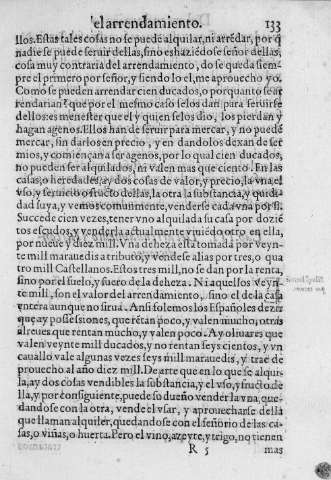 el arrendamiento. 133
llos. Estas tales cosas no se puedē alquilar, ni arrēdar, por q̄
nadie se puede seruir dellas, sino es haziēdose señor dellas,
cosa muy contraria del arrendamiento, do se queda siem-
pre el primero por señor, y siendo lo el, me aprouecho yo.
Como se pueden arrendar cien ducados, o porquanto se ar
rendarian? que por el mesmo caso selos dan para seruirse
dellos: es menester que el y quien selos dio, los pierdan y
hagan agenos. Ellos han de seruir para mercar, y no puedē
mercar, sin darlos en precio, y en dandolos dexan de ser
mios, y comiençan a ser agenos, por lo qual cien ducados,
no pueden ser alquilados, ni valen mas que ciento. En las
casas, o heredades, ay dos cosas de valor, y precio, la vna el
vso, y seruicio o fructo dellas, la otra la substancia, y quidi-
dad suya, y vemos comunmente, venderse cada vna por si.
Succede cien vezes, tener vno alquilada su casa por dozie
tos escudos, y venderla actualmente viuiēdo otro en ella,
por nueue y diez mill. Vna deheza está tomada por veyn-
te mill marauedis a tributo, y vendese alias por tres, o qua
tro mill Castellanos. Estos tres mill, no se dan por la renta,
sino por el suelo, y fuero de la deheza. Ni aquellos veyn-
te mill, son el valor del arrendamiento, sino el de la casa
entera aunque no sirua. Ansi solemos los Españoles dezir
que ay possessiones, que rētan poco, y valen mucho, otras
al reues que rentan mucho, y valen poco. Ay oliuares que
valen veynte mill ducados, y no rentan seys cientos, y vn
cauallo vale algunas vezes seys mill marauedis, y trae de
prouecho al año diez mill. De arte que en lo que se alqui-
la, ay dos cosas vendibles la substancia, y el vso, y fructo de
lla, y por consiguiente, puede su dueño vender la vna, que-
dandose con la otra, vende el vsar, y aprouecharse della
que llaman alquiler, quedandose con el señorio de las ca-
sas, o viñas, o huerta. Pero el vino, azeyte, y trigo, no tienen
R 5 mas